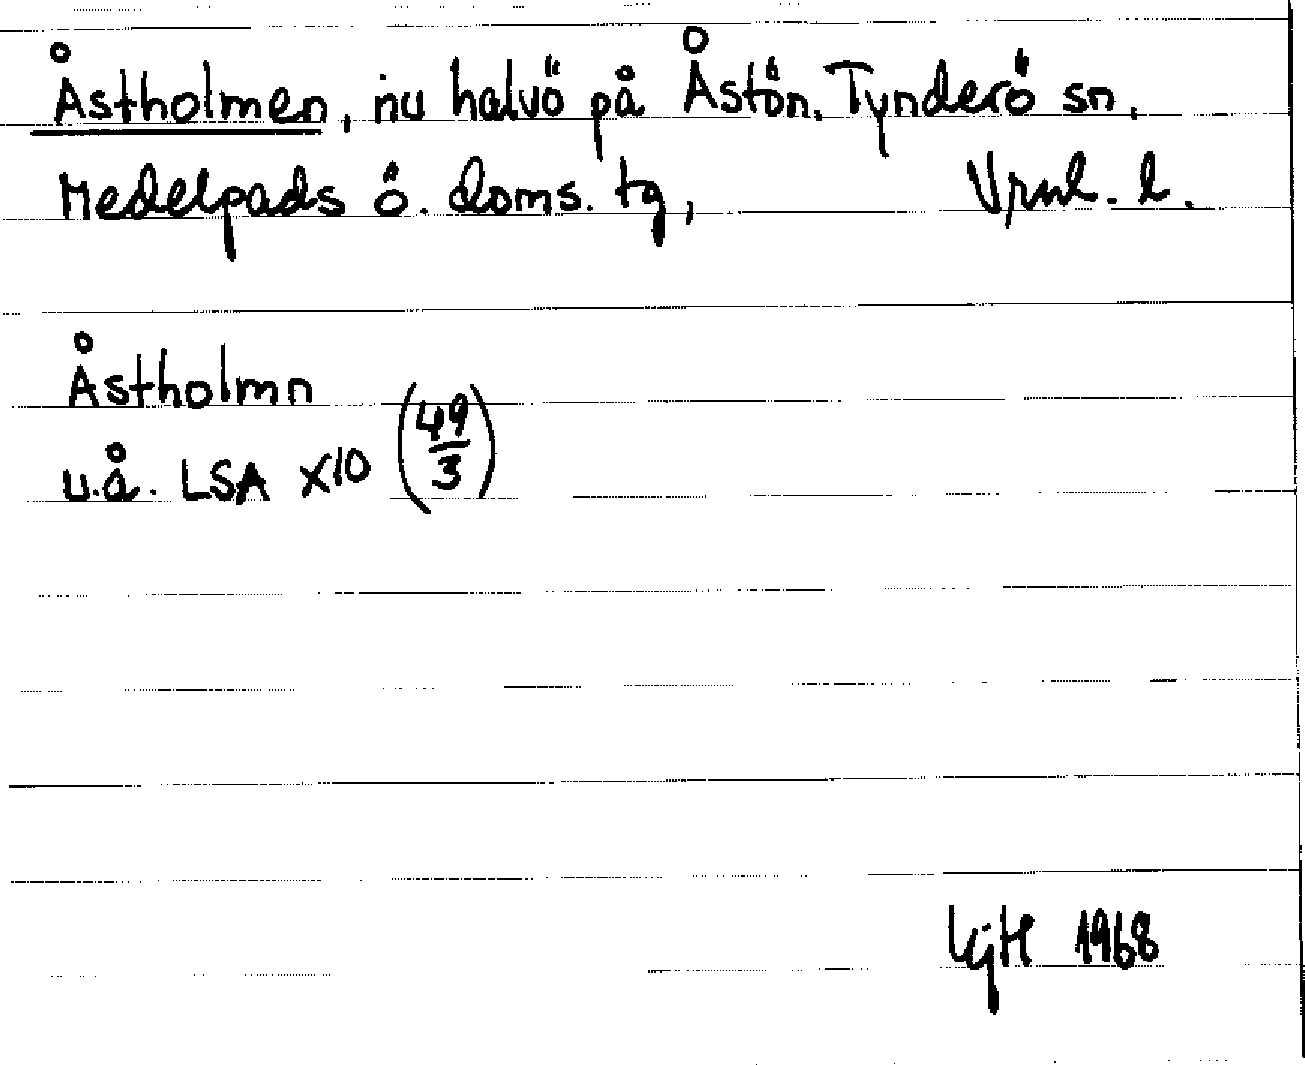 Åstholmen, nu halvö på Åstön. Tynderö sn.
Medelpads ö. doms. tg, Vrnl. l.
Åstholmn
u.å. LSA X10 (49/3)
1968